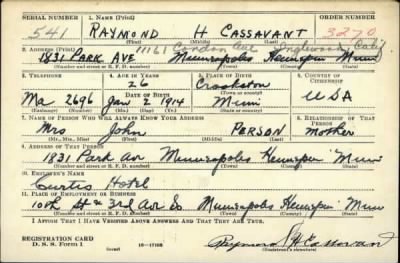 SERIAL NUMBER 1. NAME (Print) ORDER NUMBER
541 RAYMOND H CASSAVANT 3270
(First) (Middle) (Last)
11161 Condon Ave Inglewood, Calif
2. ADDRESS (Print)
1831 PARK AVE Minneapolis Hennepin Minn
(Number and street or R. F. D. number) (Town) (County) (State)
3. TELEPHONE 4. AGE IN YEARS 5. PLACE OF BIRTH 6. COUNTRY OF CITIZENSHIP
26 Crookston
DATE OF BIRTH (Town or county)
Ma 2696 Jan 2 1914 Minn USA
(Exchange) (Number) (Mo.) (Day) (Yr.) (State or country)
7. NAME OF PERSON WHO WILL ALWAYS KNOW YOUR ADDRESS 8. RELATIONSHIP OF THAT PERSON
Mrs John PERSON mother
(Mr., Mrs., Miss) (First) (Middle) (Last)
9. ADDRESS OF THAT PERSON
1831 Park Av Minneapolis Hennepin Minn
(Number and street or R. F. D. number) (Town) (County) (State)
10. EMPLOYER'S NAME
Curtis Hotel
11. PLACE OF EMPLOYMENT OR BUSINESS
10th St & 3rd Av So Minneapolis Hennepin Minn
(Number and street or R. F. D. number) (Town) (County) (State)
I AFFIRM THAT I HAVE VERIFIED ABOVE ANSWERS AND THAT THEY ARE TRUE.
REGISTRATION CARD
D. S. S. Form 1 (over) 16—17105 Raymond H Cassavant
(Registrant's signature)